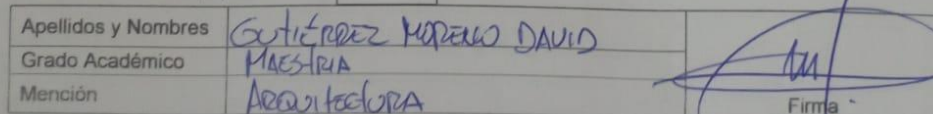 Apellidos y Nombres GUTIÉRREZ MORENO DAVID
Grado Académico MAESTRIA
Mención ARQUITECTURA
Firma